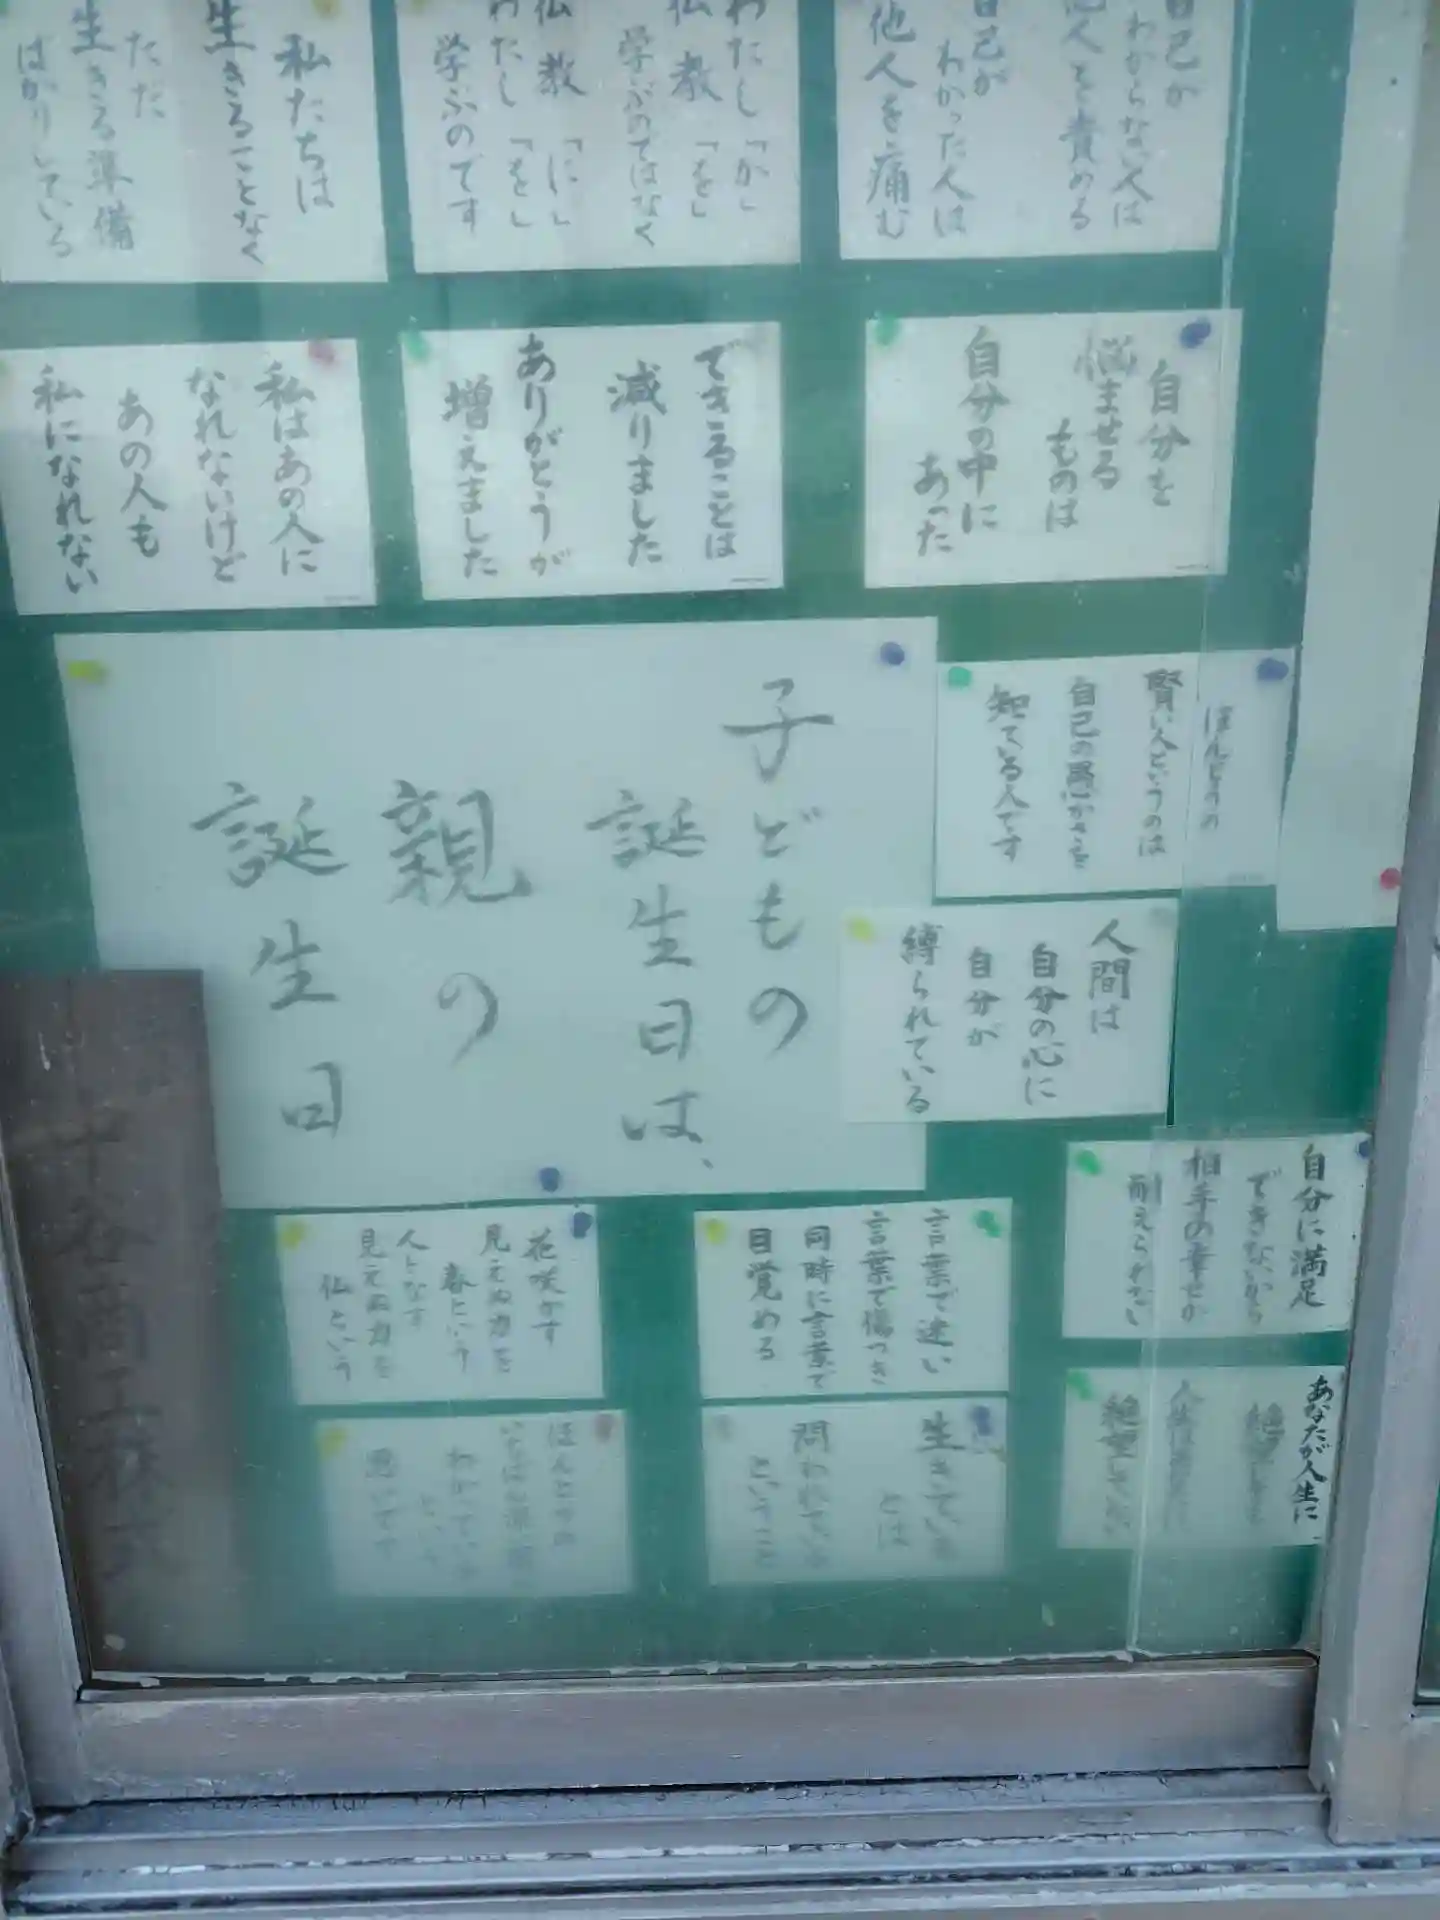 自己が
わからない人は
他人を責める
自己が
わかった人は
他人を痛む
わたし「が」
仏教「を」
学ぶのではなく
仏教「に」
わたし「を」
学ぶのです
私たちは
生きることなく
ただ
生きる準備
ばかりしている
自分を
悩ませる
ものは
自分の中に
あった
できることは
減りました
ありがとうが
増えました
私はあの人に
なれないけど
あの人も
私になれない
ほんとうの
賢い人というのは
自己の愚かさを
知っている人です
子どもの
誕生日は、
親の
誕生日
人間は
自分の心に
自分が
縛られている
自分に満足
できないから
相手の幸せが
耐えられない
言葉で迷い
言葉で傷つき
同時に言葉で
目覚める
花咲かす
見えぬ力を
春という
人となす
見えぬ力を
仏という
あなたが人生に
絶望しても
人生はあなたに
絶望しない
生きている
とは
問われている
ということ
ほんとうの
わかっている
という
思いです